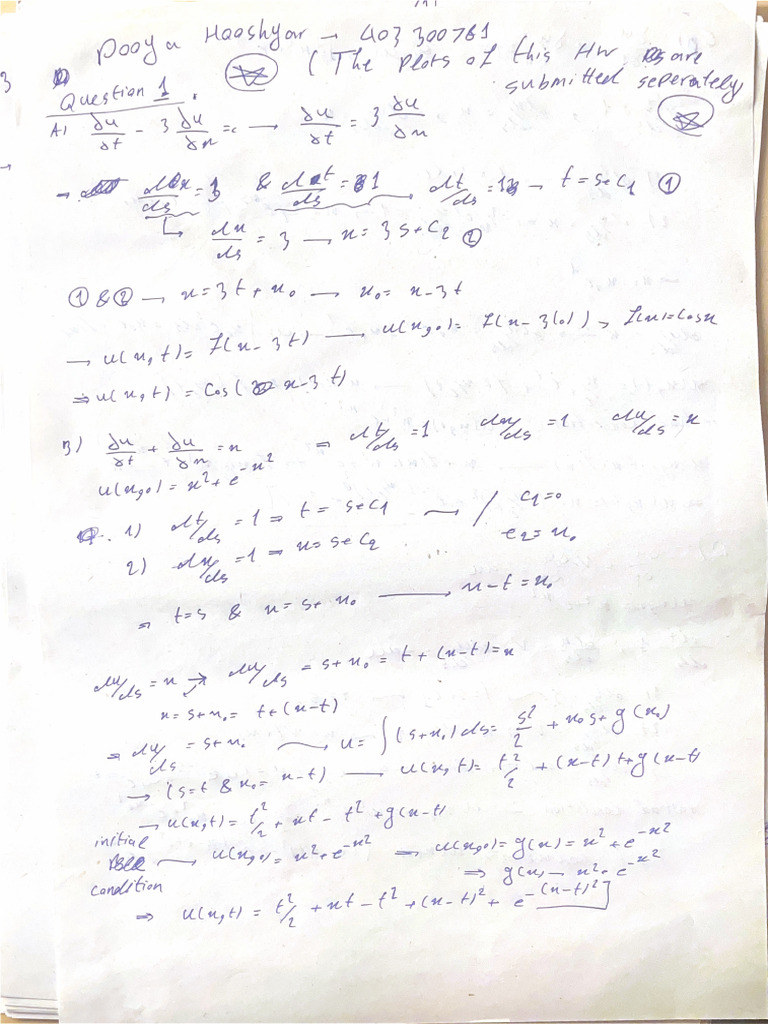 Pooya Hooshyar → 403300761
(The Plots of this Hw are
submitted seperately
Question 1.
A) ∂u/∂t - 3 ∂u/∂x = 0 → ∂u/∂t = 3 ∂u/∂x
→ dx/ds = 3 & dt/ds = 1 → dt/ds = 1 → t = s + C1 ①
↳ dx/ds = 3 → x = 3s + C2 ②
① & ② → x = 3t + x0 → x0 = x - 3t
→ u(x,t) = f(x - 3t) → u(x,0) = f(x - 3(0)) → f(x) = Cos x
⇒ u(x,t) = Cos(x - 3t)
B) ∂u/∂t + ∂u/∂x = x ⇒ dt/ds = 1 dx/ds = 1 du/ds = x
u(x,0) = x² + e^-x²
1) dt/ds = 1 ⇒ t = s + C1 → / C1 = 0
2) dx/ds = 1 ⇒ x = s + C2 C2 = x0
⇒ t = s & x = s + x0 → x - t = x0
du/ds = x → du/ds = s + x0 = t + (x - t) = x
x = s + x0 = t + (x - t)
⇒ du/ds = s + x0 → u = ∫(s + x0) ds = s²/2 + x0 s + g(x0)
→ (s = t & x0 = x - t) → u(x,t) = t²/2 + (x - t)t + g(x - t)
→ u(x,t) = t²/2 + xt - t² + g(x - t)
initial
condition → u(x,0) = x² + e^-x² ⇒ u(x,0) = g(x) = x² + e^-x²
⇒ g(x) → x² + e^-x²
⇒ u(x,t) = t²/2 + xt - t² + (x - t)² + e^-(x - t)²